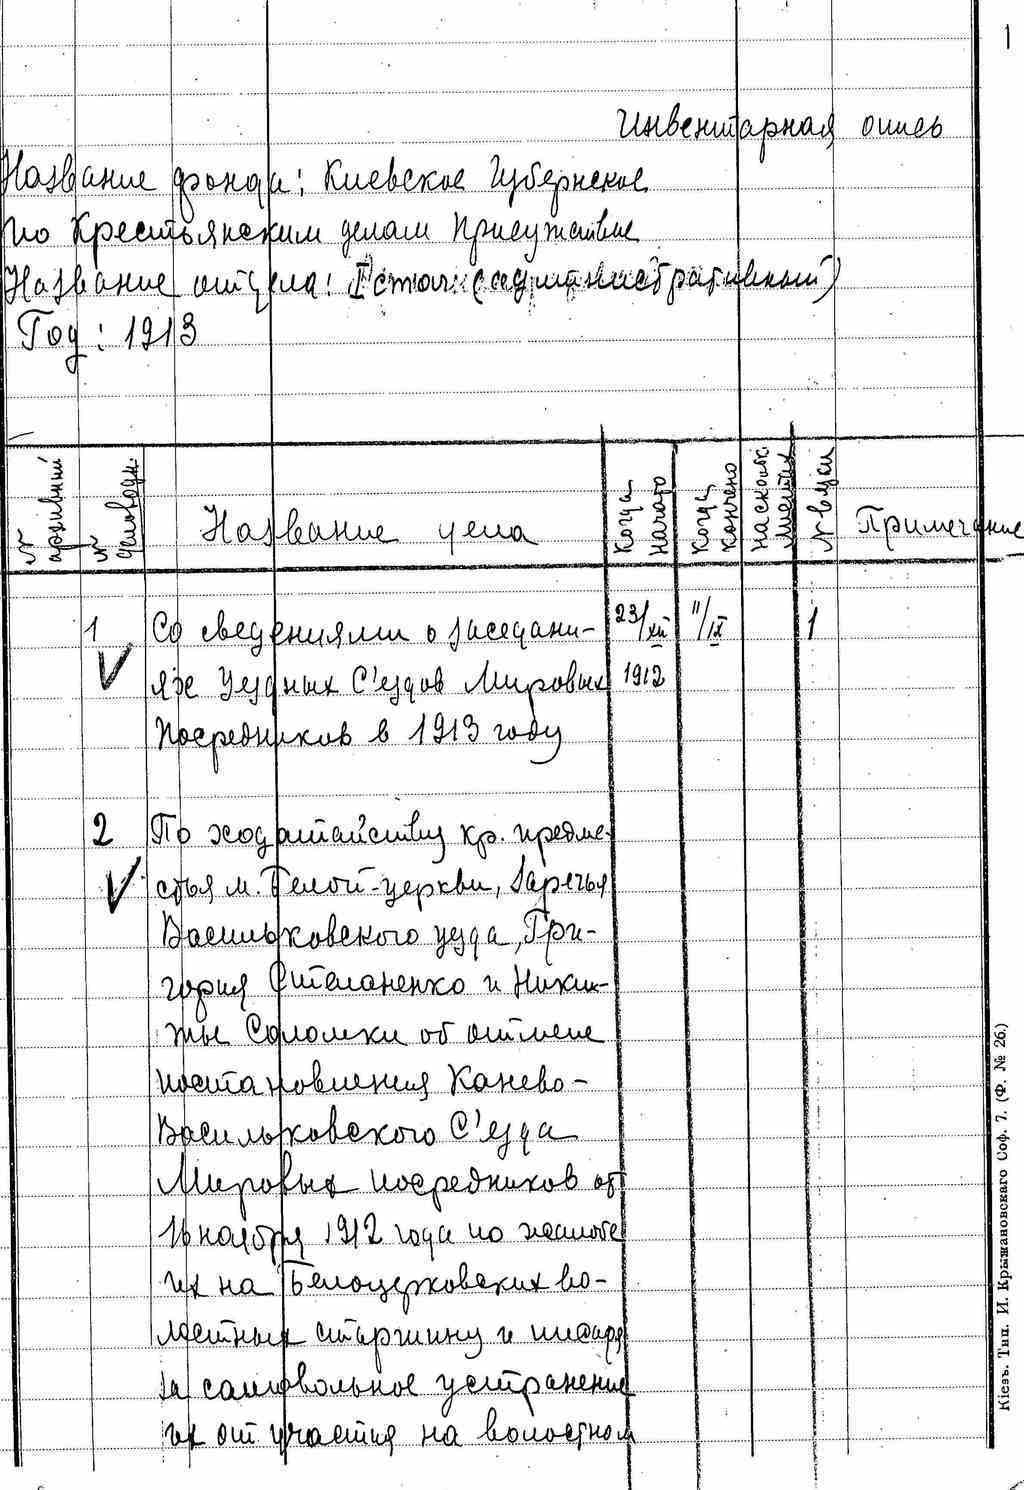 1
Инвентарная опись
Название фонда: Киевское Губернское
по Крестьянским делам Присутствие
Название отдела: I стол (административный)
Год: 1913
№ архивный
№ деловодн.
Название дела
Когда начато
Когда кончено
на скольк. листах
№ вязки
Примечание
1
Со сведениями о заседани-
ях Уездных С'ездов Мировых
Посредников в 1913 году
23/XII
1912
11/IX
1
2
По ходатайству кр. предме-
стья м. Белой-церкви, Заречья
Васильковского уезда, Гри-
гория и Ники-
ты Соломки об отмене
постановления Канево-
Васильковского С'езда
Мировых посредников от
16 ноября 1912 года по жалобе
их на Белоцерковских во-
лостных старшину и писаря
за самовольное устранение
их от участия на волостном
Кіевъ. Тип. И. Крыжановскаго Соф. 7. (Ф. № 26.)